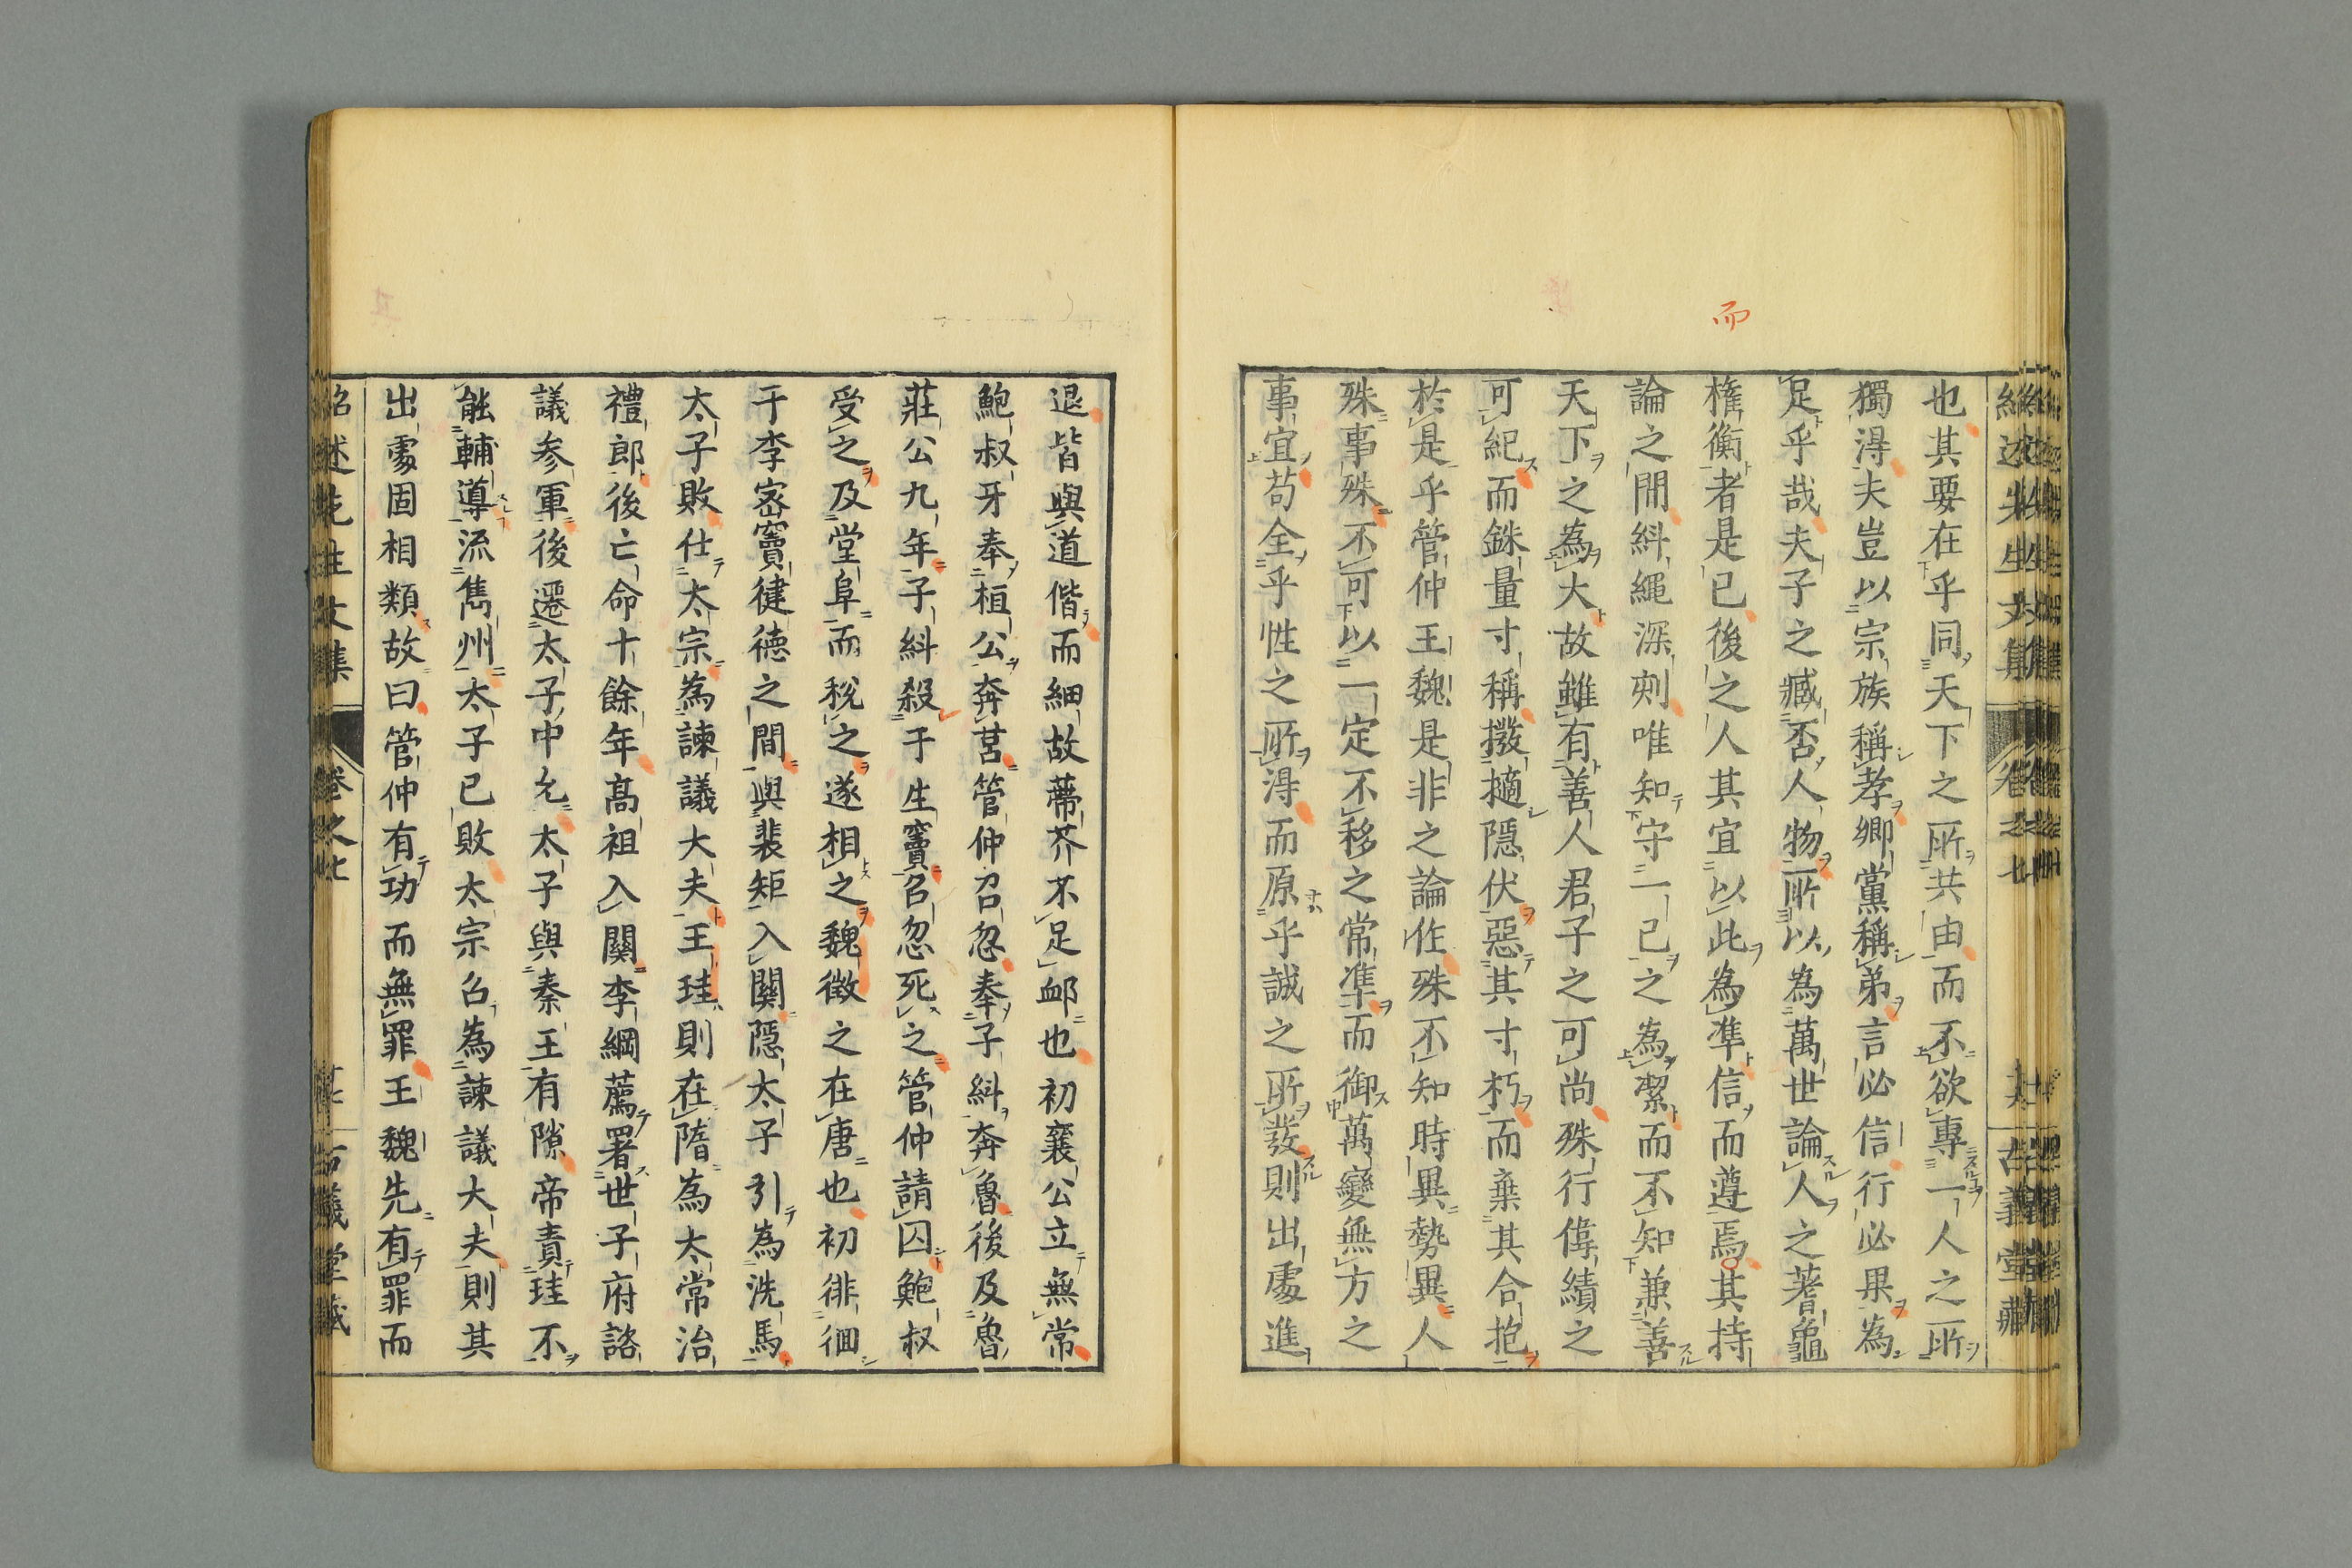 而
紹述先生文集 卷之七 古義堂藏
也其要在乎同天下之所共由而不欲專一人之所
獨得夫豈以宗族稱孝鄉黨稱弟言必信行必果為
足乎哉夫子之臧否人物所以為萬世論人之蓍龜
權衡者是已後之人其宜以此為準信而遵焉其持
論之間糾繩深刻唯知守一己之為潔而不知兼善
天下之為大故雖有善人君子之可尚殊行偉績之
可紀而銖量寸稱撥擿隱伏惡其寸朽而棄其合抱
於是乎管仲王魏是非之論作殊不知時異勢異人
殊事殊不可以一定不移之常準而御萬變無方之
事宜苟全乎性之所得而原乎誠之所發則出處進
退皆與道偕而細故蔕芥不足卹也初襄公立無常
鮑叔牙奉桓公奔莒管仲召忽奉子糾奔魯後及魯
莊公九年子糾殺于生竇召忽死之管仲請囚鮑叔
受之及堂阜而稅之遂相之魏徵之在唐也初徘徊
于李密竇建德之間與裴矩入關隱太子引為洗馬
太子敗仕太宗為諫議大夫王珪則在隋為太常治
禮郎後亡命十餘年高祖入關李綱薦署世子府諮
議參軍後遷太子中允太子與秦王有隙帝責珪不
能輔導流雋州太子已敗太宗召為諫議大夫則其
出處固相類故曰管仲有功而無罪王魏先有罪而
紹述先生文集 卷之七 古義堂藏